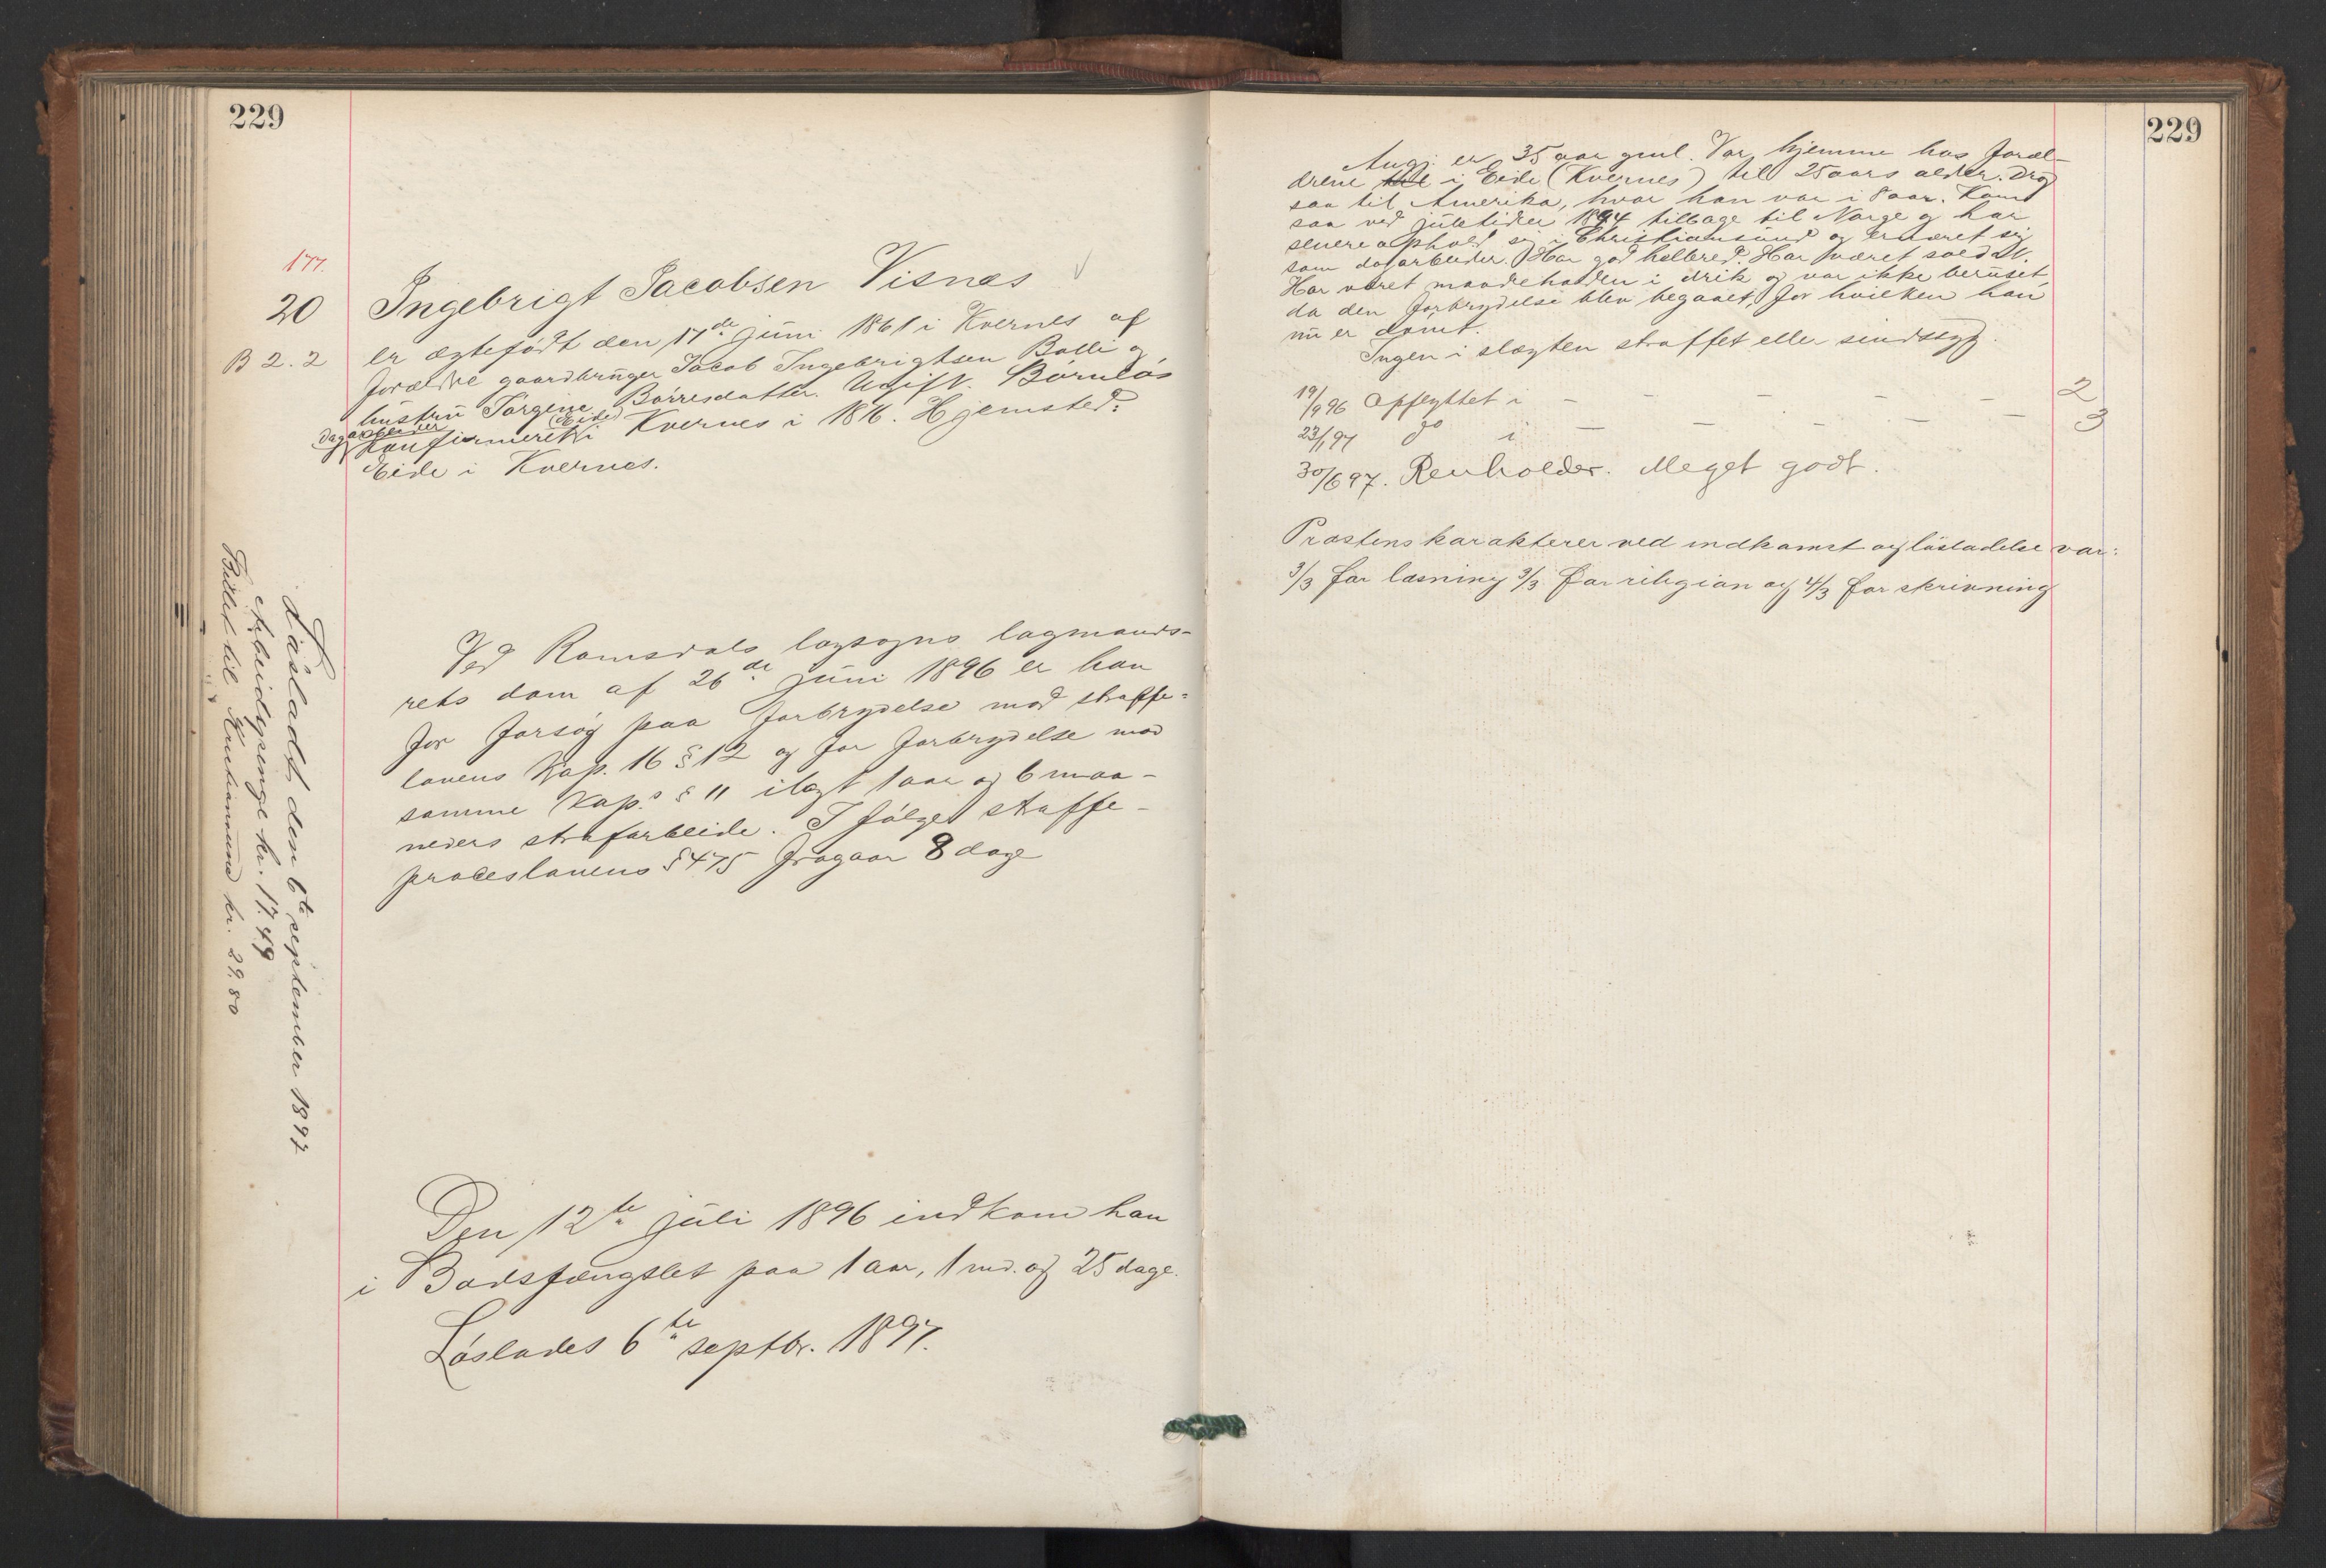 229
177.
20
B 2. 2
Ingebrigt Jacobsen Visnæs
er ægtefødt den 17de juni 1861 i Kvernes af
forældre gaardbruger Jacob Ingebrigtsen Bolli og
hustru Jørgine Børresdatter. Ugift. Børnløs
dagarbeider (Eide)
Konfirmeret i Kvernes i 1876. Hjemsted:
Eide i Kvernes.
Ved Romsdals lagsogns lagmands-
rets dom af 26de juni 1896 er han
for forsøg paa forbrydelse mod straffe-
lovens Kap. 16 § 12 og for forbrydelse mod
samme Kap.s § 11 ilagt 1 aar og 6 maa-
neders strafarbeide. I følge straffe-
proceslovens § 475 fragaar 8 dage
Den 12te juli 1896 indkom han
i Bodsfængslet paa 1 aar, 1 md. og 25 dage.
Løslades 6te septbr. 1897.
Løsladt den 6te september 1897
Arbeidspenge kr. 17.49
Billet til Kristiansund kr. 29.80
229
Angj. er 35 aar gml. Var hjemme hos foræl-
drene i Eide (Kvernes) til 25 aars alder. Drog
saa til Amerika, hvor han var i 8 aar. Kom
saa ved juletider 1894 tilbage til Norge og har
senere opholdt sig i Christiansund og ernæret sig
som dagarbeider. Har god helbred. Har været soldat.
Har været maadeholden i drik og var ikke beruset,
da den forbrydelse blev begaaet, for hvilken han
nu er dømt.
Ingen i slægten straffet eller sindssyg.
19/9 96 Opflyttet i - - - - 2
23/1 97 do i - - - - - 3
30/6 97. Renholder. Meget godt.
Præstens karakterer ved indkomst og løsladelse var:
3/3 for læsning 3/3 for religion og 4/3 for skrivning